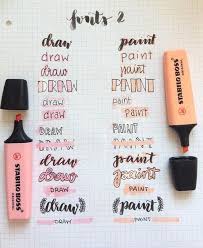 fonts 2
draw paint
draw PAINT
draw paint
DRAW PAINT
draw paint
draw PAINT
DRAW PAINT
DRAW PAINT
draw paint
draw paint
DRAW PAINT
draw paint
DRAW PAINT
STABILO BOSS
STABILO BOSS